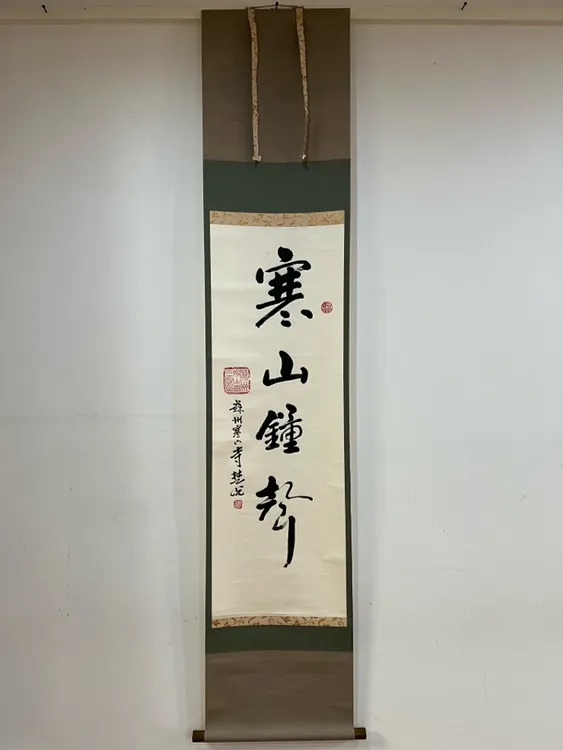 寒山鐘聲
蘇州寒山寺楚光